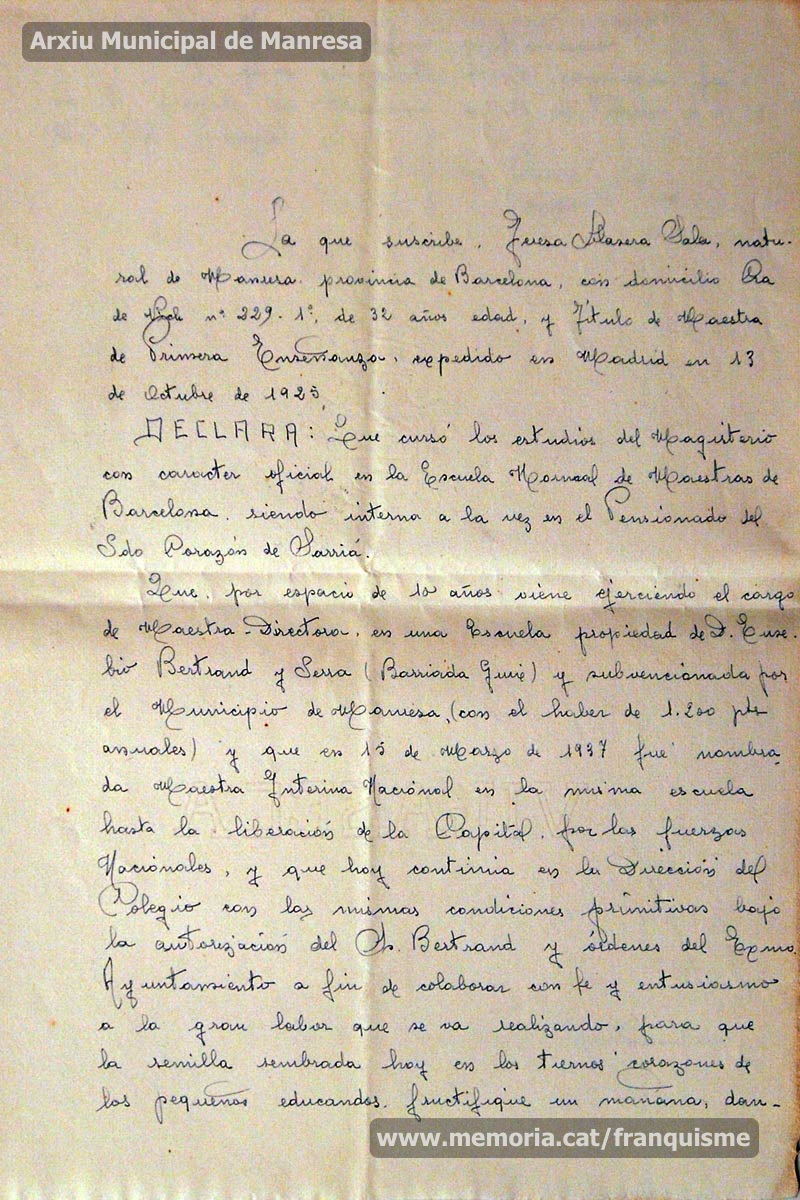 Arxiu Municipal de Manresa
La que suscribe, Teresa Masera Sala, natu-
ral de Manresa provincia de Barcelona, con domicilio Ra
de nº 229. 1º, de 32 años edad, y Título de Maestra
de Primera Enseñanza, expedido en Madrid en 13
de Octubre de 1925
DECLARA: Que cursó los estudios del Magisterio
con caracter oficial en la Escuela Normal de Maestras de
Barcelona, siendo interna a la vez en el Pensionado del
Sdo Corazón de Sarriá.
Que, por espacio de 10 años viene ejerciendo el cargo
de Maestra-Directora, en una Escuela propiedad de D. Euse-
bio Bertrand y Serra (Barriada Guix) y subvencionada por
el Municipio de Manresa, (con el haber de 1.200 pts
anuales) y que en 15 de Marzo de 1937 fué nombra-
da Maestra Interina Nacional en la misma escuela
hasta la liberación de la Capital, por las fuerzas
Nacionales, y que hoy continua en la Dirección del
Colegio con las mismas condiciones primitivas bajo
la autorización del Sr. Bertrand y órdenes del Exmo.
Ayuntamiento a fin de colaborar con fe y entusiasmo
a la gran labor que se va realizando, para que
la semilla sembrada hoy en los tiernos corazones de
los pequeños educandos, fructifique un mañana, dan-
www.memoria.cat/franquisme